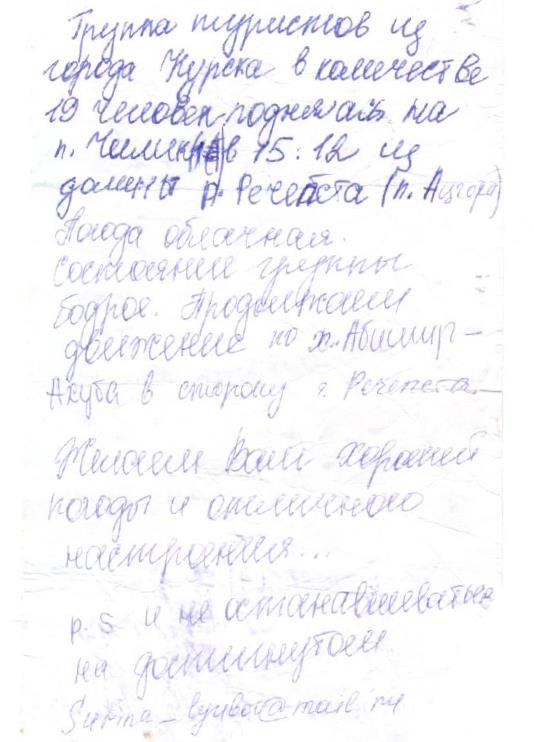 Группа туристов из
города Курска в количестве
19 человек поднялась на
п. в 15:12 из
долины р. Речепста (п. Ацгара)
Погода облачная.
Состояние группы
бодрое. Продолжаем
движение по х. Абишир-
Ахуба в сторону г. Речепста.
Желаем Вам хорошей
погоды и отличного
настроения...
P.S и не останавливаться
на достигнутом